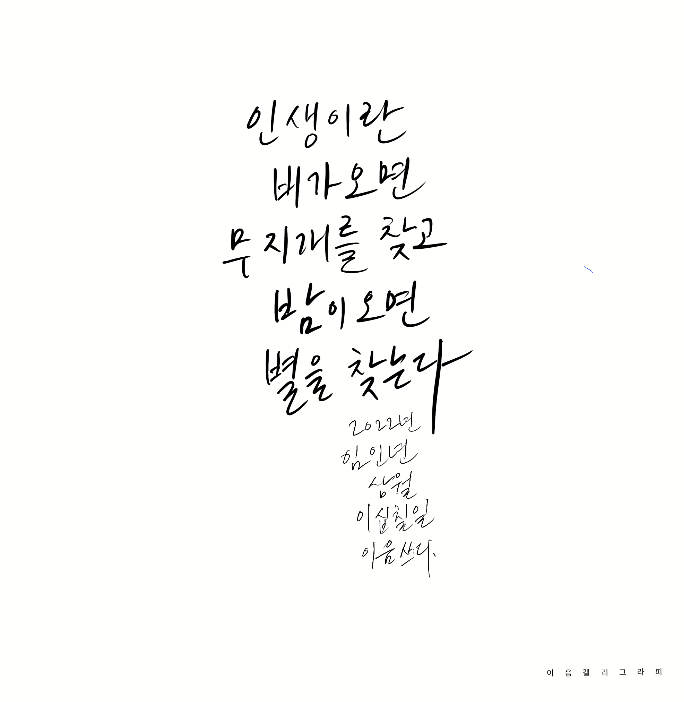 인생이란
비가오면
무지개를 찾고
밤이오면
별을 찾는다
2022년
임인년
삼월
이십칠일
이음쓰다.
이음캘리그라피